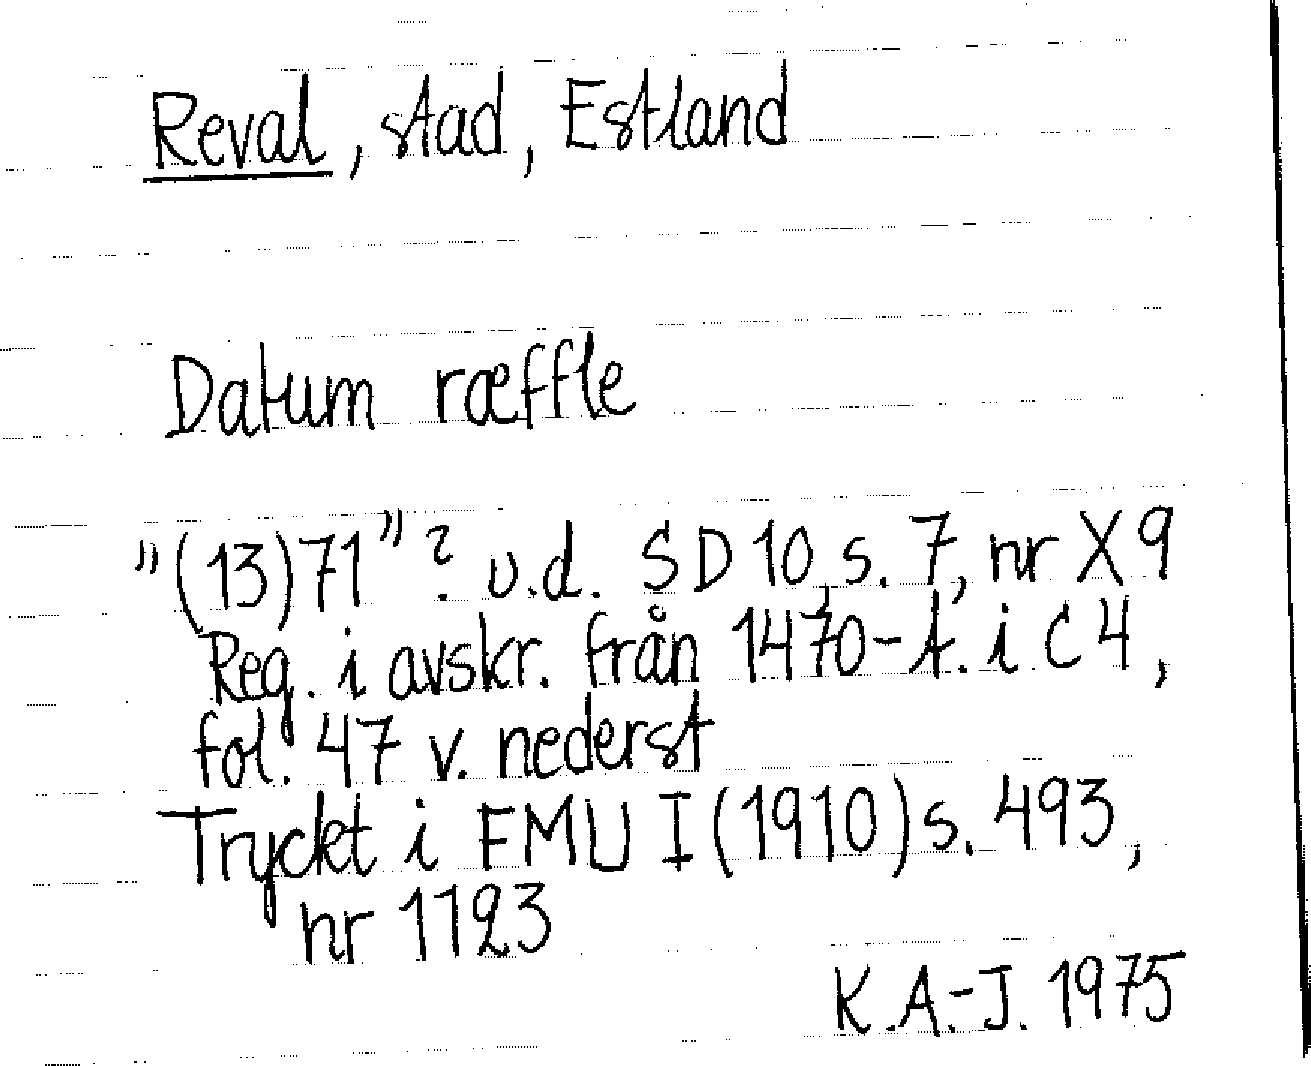 Reval, stad, Estland
Datum ræffle
"(13)71"? u.d. SD 10 s. 7, nr X 9
Reg. i avskr. från 1470-t. i C 4,
fol. 47 v. nederst
Tryckt i FMU I (1910) s. 493,
nr 1123
K.A.-J. 1975